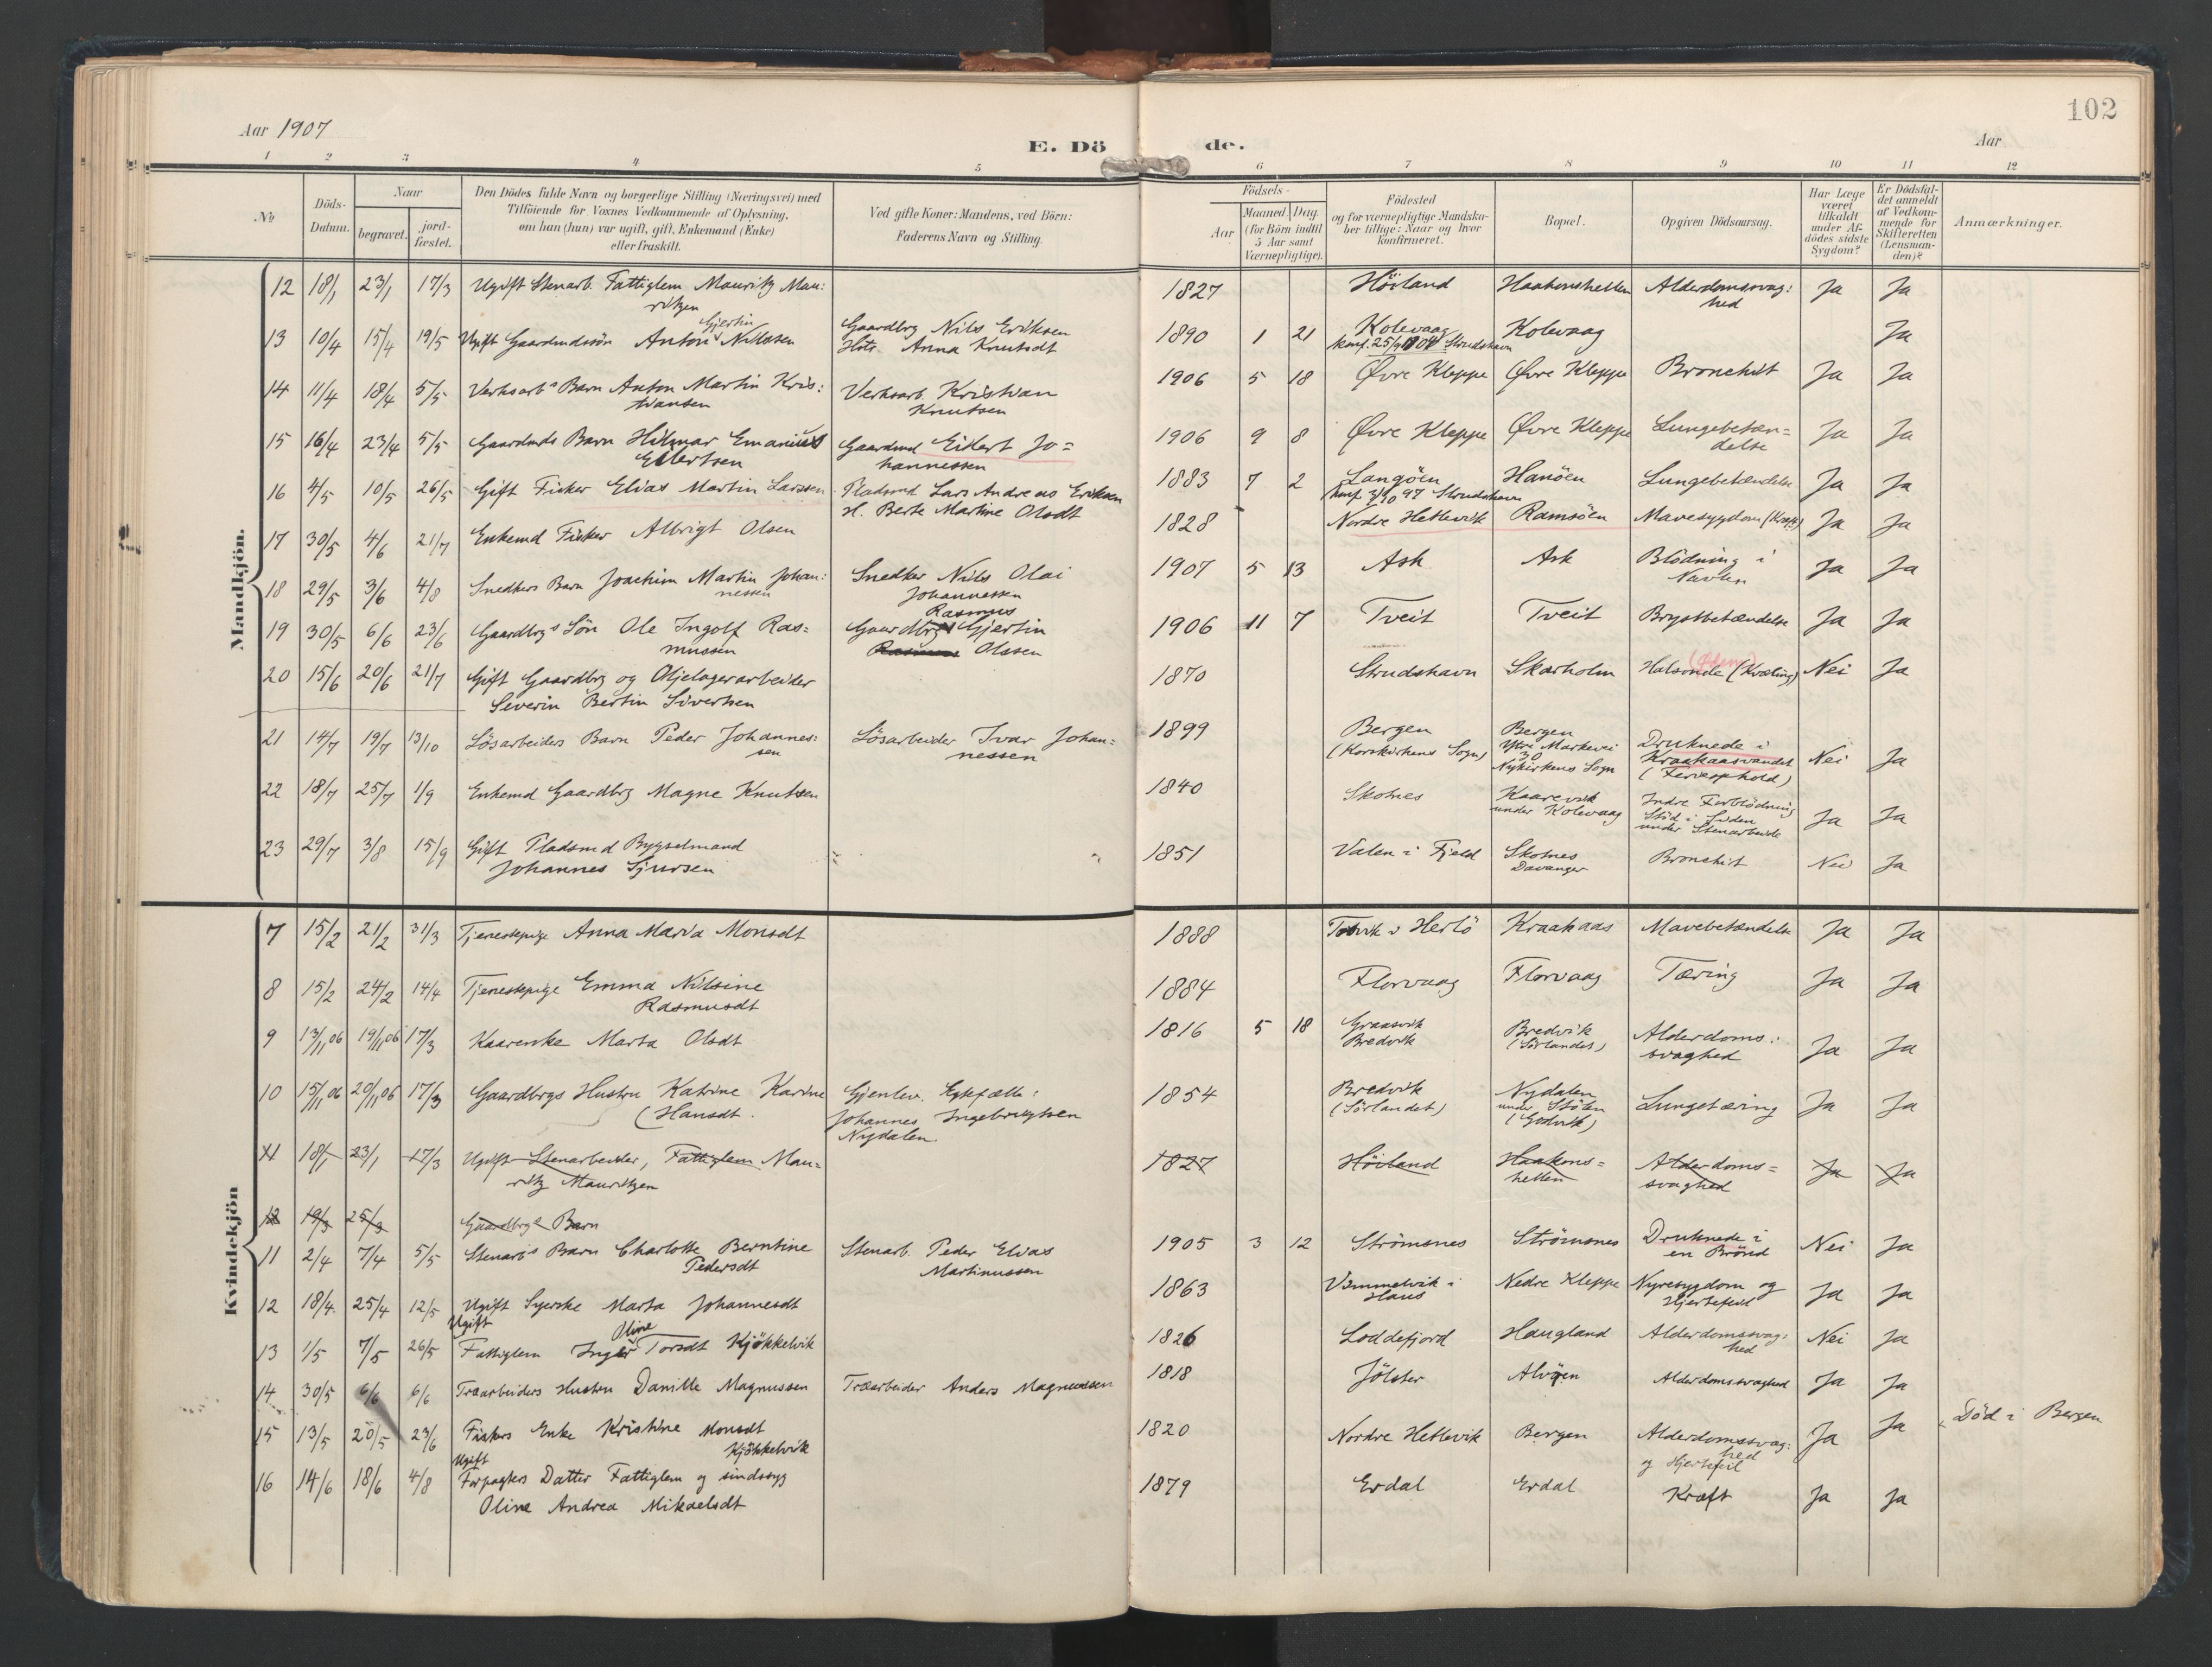 102
Aar 1907
E. Döde.
Aar
1 2 3 4 5 6 7 8 9 10 11 12
№
Döds-Datum.
Naar
begravet.
jord-fæstet.
Den Dödes fulde Navn og borgerlige Stilling (Næringsvei) med
Tilföiende for Voxnes Vedkommende af Oplysning,
om han (hun) var ugift, gift, Enkemand (Enke)
eller fraskilt.
Ved gifte Koner: Mandens, ved Börn:
Faderens Navn og Stilling.
Födsels-
Aar
Maaned. Dag.
(for Börn indtil
5 Aar samt
Værnepligtige).
Födested
og for værnepligtige Mandskaber tillige: Naar og hvor
konfirmeret.
Bopæl.
Opgiven Dödsaarsag.
Har Læge
været
tilkaldt
under Afdödes sidste
Sygdom?
Er Dödsfaldet anmeldt
af Vedkommende for
Skifteretten
(Lensmanden)?
Anmærkninger.
Mandkjön.
12 18/1 23/1 17/3 Ugift Stenarb. Fattiglem Mauritz Mau: 1827 Höiland Haakonshellen Alderdomssvag: Ja Ja
ritzen hed
Gjertin
13 10/4 15/4 19/5 Ugift Gaardmdssön Anton Nilssen Gaardbrg Nils Eriksen 1890 1 21 Kolevaag Kolevaag Ja
Hstr. Anna Knutsdt konf. 25/9 1904 Strudshavn
14 11/4 18/4 5/5 Verksarbs Barn Anton Martin Kris: Verksarb. Kristian 1906 5 18 Øvre Kleppe Øvre Kleppe Bronchit Ja Ja
tiansen Knutsen
15 16/4 23/4 5/5 Gaardmds Barn Hilmar Emanius Gaardmd Eilert Jo= 1906 9 8 Øvre Kleppe Øvre Kleppe Lungebetæn= Ja Ja
Eilertsen hannessen delse
16 4/5 10/5 26/5 Gift Fisker Elias Martin Larssen Pladsmd Lars Andreas Eriksen 1883 7 2 Langöen Hanöen Lungebetændelse Ja Ja
H. Berte Martine Olsdt konf. 3/10 97 Strudshavn
17 30/5 4/6 21/7 Enkemd Fisker Albrigt Olsen 1828 Nordre Hetlevik Ramsöen Mavesygdom (Kræft) Ja Ja
18 29/5 3/6 4/8 Snedkers Barn Joachim Martin Johan: Snedker Nils Olai 1907 5 13 Ask Ask Blödning i Ja Ja
nessen Johannessen Navlen
Rasmus
19 30/5 6/6 23/6 Gaardbrgs Sön Ole Ingolf Ras= Gaardbrg Gjertin 1906 11 7 Tveit Tveit Brystbetændelse Ja Ja
mussen Rasmus Olssen
20 15/6 20/6 21/7 Gift Gaardbrg og Oljelagerarbeider 1870 Strudshavn Skarholm Halsonde (Kvæling) Nei Ja
Severin Bertin Sivertsen
21 14/7 19/7 13/10 Lösarbeiders Barn Peder Johannes: Lösarbeider Ivar Johan= 1899 Bergen Bergen Druknede i Nei Ja
sen nessen (Korskirkens Sogn) Ytre Markevei 30 Kraakaasvandet
Nykirkens Sogn (Ferieophold)
22 18/7 25/7 1/9 Enkemd Gaardbrg Magne Knutsen 1840 Skotnes Kaarevik Indre Forblödning Ja Ja
under Kolevaag Stöd i Siden
under Stenarbeide
23 29/7 3/8 15/9 Gift Pladsmd Bygselmand 1851 Valen i Fjeld Skotnes Bronchit Nei Ja
Johannes Sjursen Davanger
Kvindekjön
7 15/2 21/2 31/3 Tjenestepige Anna Maria Monsdt 1888 Herlö Kraakaas Mavebetændelse Ja Ja
8 15/2 24/2 14/4 Tjenestepige Emma Nilsine 1884 Florvaag Florvaag Tæring Ja Ja
Rasmusdt
9 13/11 06 19/11 06 17/3 Kaarenke Marta Olsdt 1816 5 18 Graasvik Bredvik Alderdoms: Ja Ja
Bredvik (Sörlandet) svaghed
10 15/11 06 20/11 06 17/3 Gaardbrgs Hustru Katrine Karine Gjenlev. Egtefælle: 1854 Bredvik Nydalen Lungetæring Ja Ja
(Hansdt. Johannes Ingebrigtsen (Sörlandet) under Stölen
Nydalen. (Godvik)
11 18/1 23/1 17/3 Ugift Stenarbeider, Fattiglem Mau= 1827 Höiland Haakons= Alderdoms= Ja Ja
ritz Mauritzen hellen svaghed
12 19/3 25/3 Gaardbrgs Barn
11 2/4 7/4 5/5 Stenarbs Barn Charlotte Berntine Stenarb. Peder Elias 1905 3 12 Strömsnes Strömsnes Druknede i Nei Ja
Pedersdt Martinussen en Brönd
12 18/4. 25/4 12/5 Ugift Syerske Marta Johannesdt 1863 Vimmelvik i Nedre Kleppe Nyresygdom og Ja Ja
Haus Hjertefeil
Ugift Oline
13 1/5 7/5 26/5 Fattiglem Inger Torsdt Kjökkelvik 1826 Loddefjord Haugland Alderdomssvag: Nei Ja
hed
14 30/5 6/6 6/6 Træarbeiders Hustru Danille Magnussen Træarbeider Anders Magnussen 1818 Jölster Alvöen Alderdomssvaghed Ja Ja
15 13/5 20/5 23/6 Fiskers Enke Kristine Monsdt 1820 Nordre Hetlevik Bergen Alderdomssvag: Ja Ja Död i Bergen
Kjökkelvik hed
og Hjertefeil
Ugift
16 14/6 18/6 4/8 Forpagters Datter Fattiglem og sindssyg 1879 Erdal Erdal Kræft Ja Ja
Oline Andrea Mikaelsdt